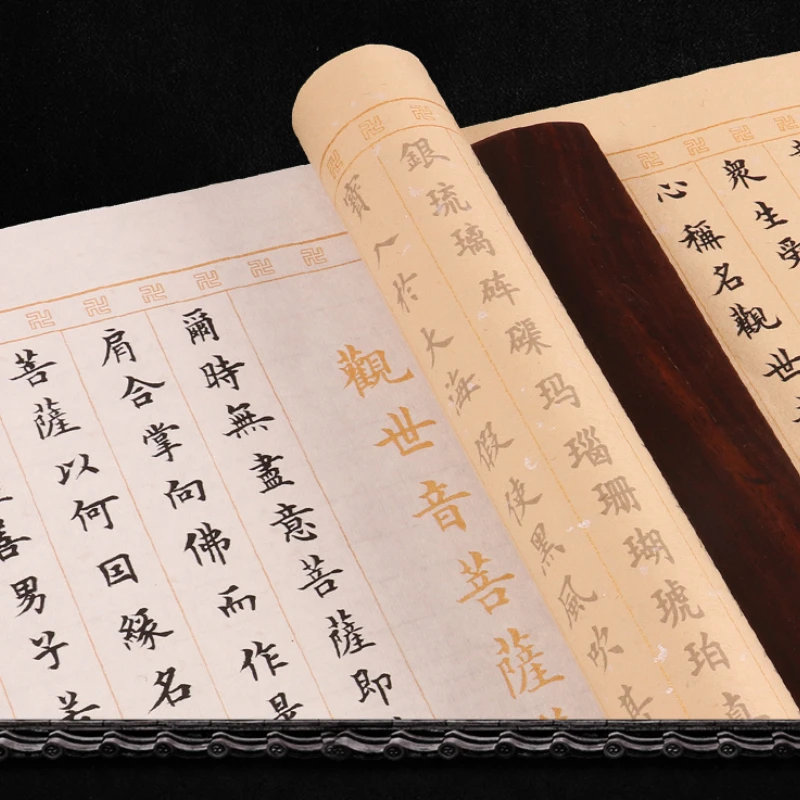 衆生受
心稱名觀世
銀琉璃砗磲玛瑙珊瑚琥珀真
寶入於大海假使黑風吹其
觀世音菩薩
爾時無盡意菩薩即
肩合掌向佛而作是
菩薩以何因緣名
善男子若